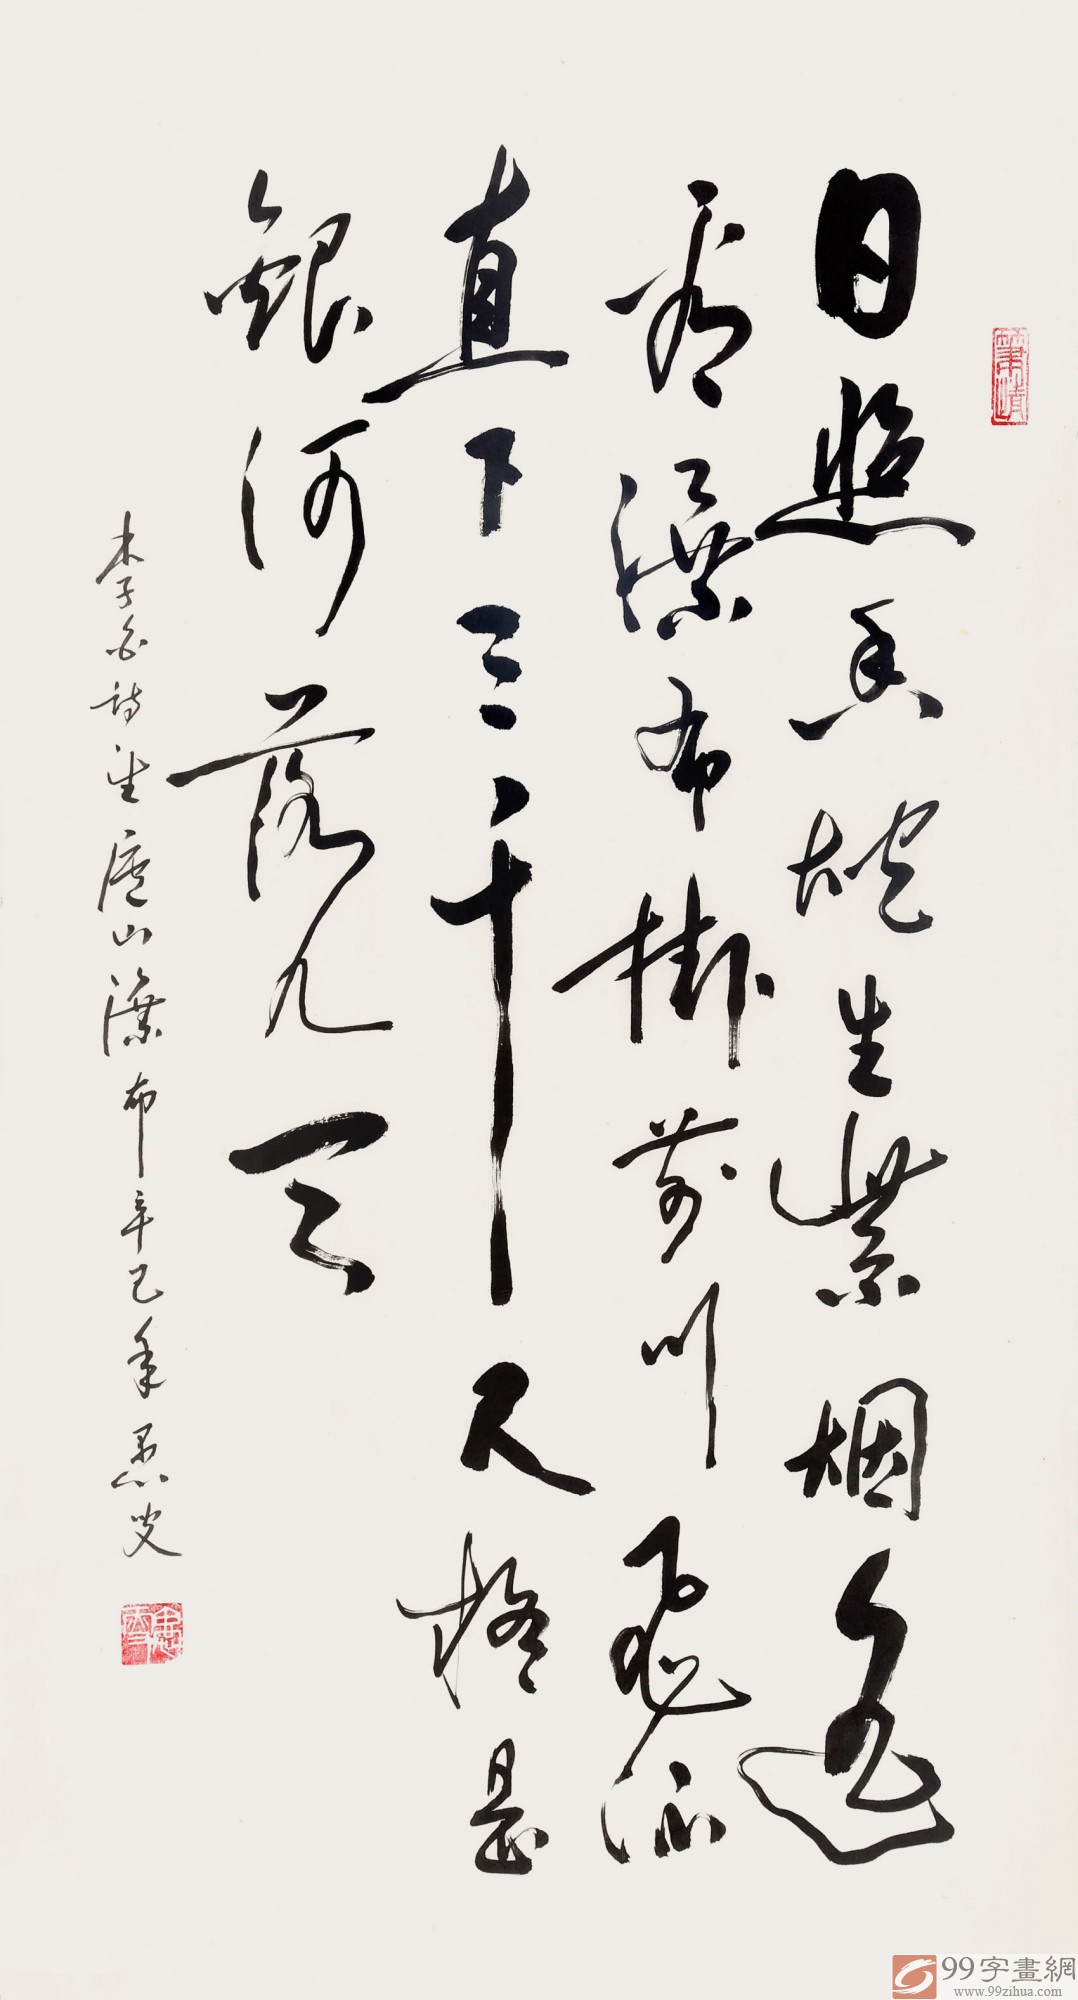 日照香爐生紫烟遥
看瀑布掛前川飛流
直下三千尺疑是
銀河落九天
李白詩望廬山瀑布辛巳年愚叟
99字畫網
www.99zihua.com